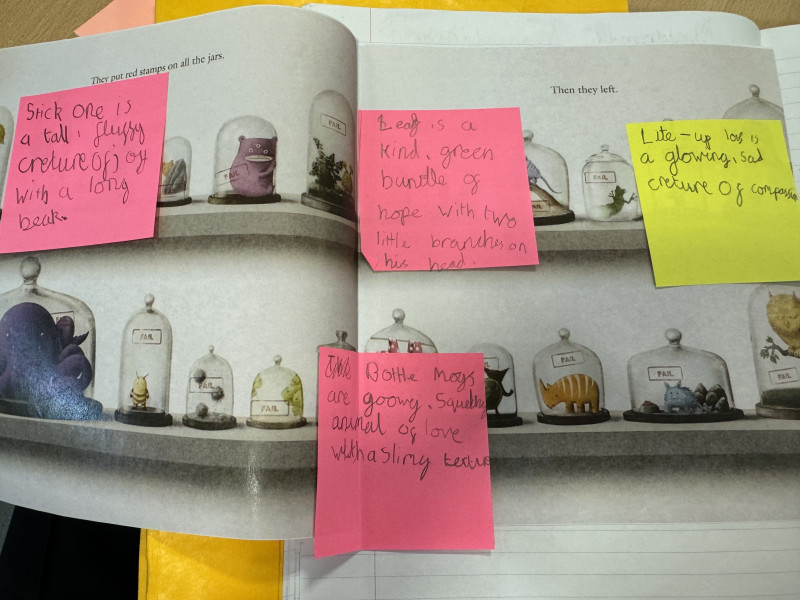 They put red stamps on all the jars.
Stick One is
a tall, fluffy
creture of joy
with a long
beak.
FAIL
FAIL
FAIL
FAIL
FAIL
FAIL
Then they left.
Leaf is a
kind, green
bundle of
hope with two
little branches on
his head.
FAIL
FAIL
Lite-up loss is
a glowing, sad
creture of compassion
Bottle Moys
are goowy, squelchy
animal of love
with a slimy texture
FAIL
FAIL
FAIL